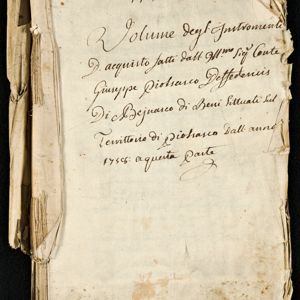 Volume degl'Instromenti
D'acquisto fatti dall'Ill.mo Sig.r Conte
Giuseppe Piossasco Deffedericis
Di Beinasco di Beni Situati Sul
Territorio di Piossasco dall'anno
1758 a questa Parte